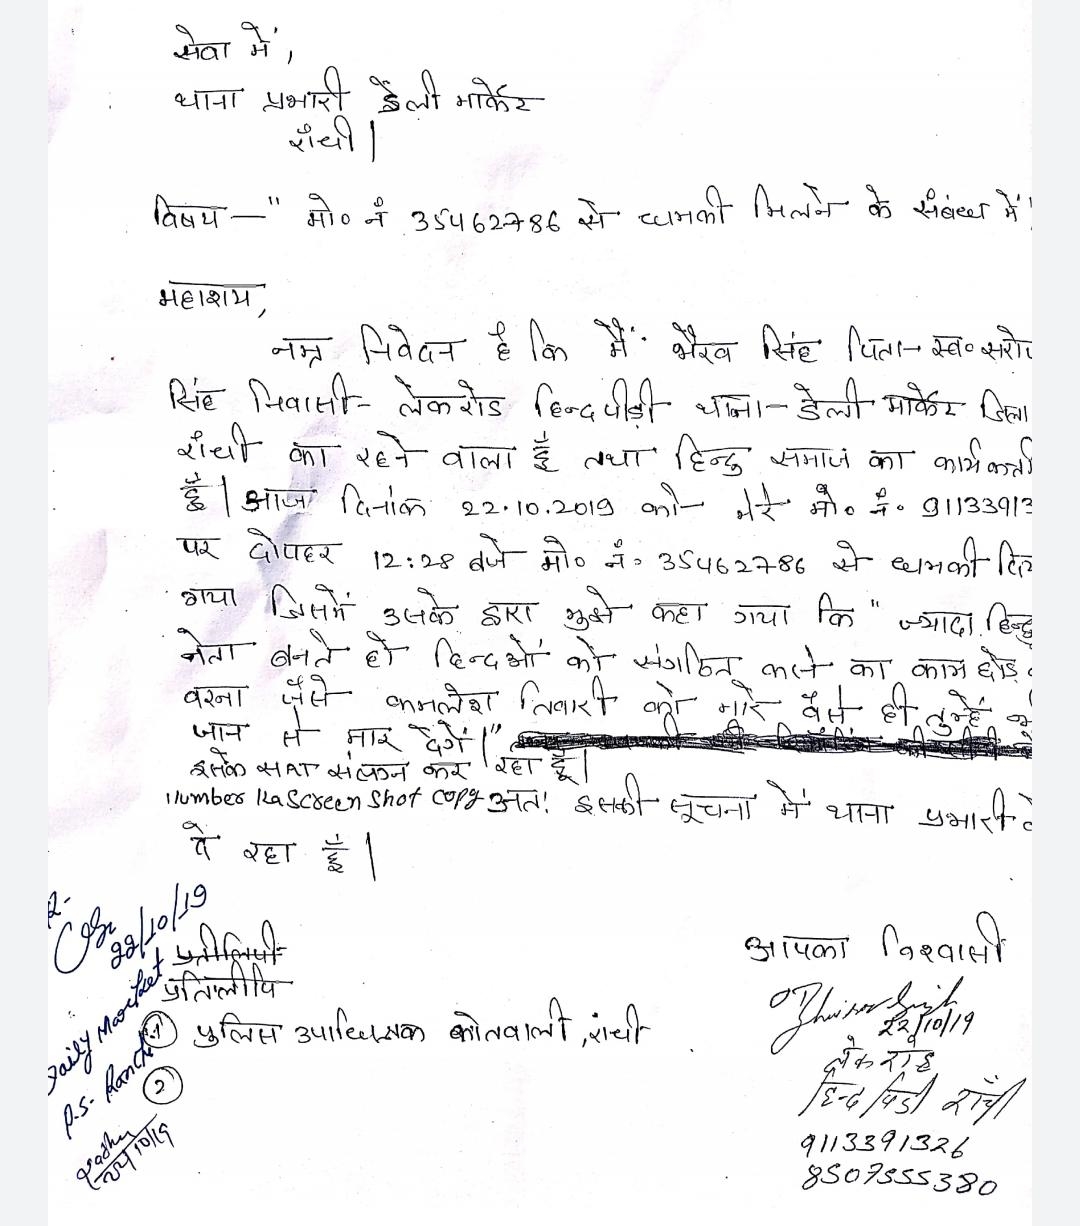 सेवा में,
थाना प्रभारी डेली मार्केट
राँची।
विषय — " मो० नं 35462786 से धमकी मिलने के संबंध में"
महाशय,
नम्र निवेदन है कि मैं भैरव सिंह पिता- स्व० सरो
सिंह निवासी- लेकरोड हिन्दपीढ़ी थाना- डेली मार्केट जिला
राँची का रहने वाला हूँ तथा हिन्दु समाज का कार्यकर्ता
हूँ। आज दिनांक 22.10.2019 को मेरे मो० नं० 9113391
पर दोपहर 12:28 बजे मो० नं० 35462786 से धमकी दिया
गया जिसमें उसके द्वारा मुझे कहा गया कि "ज्यादा हिन्दु
नेता बनते हो हिन्दओं को संगठित करने का काम छोड़
वरना जैसे कमलेश तिवारी को मारे वैसे ही तुम्हें
जान से मार देगें।"
इसके साथ संलग्न कर रहा हूँ।
Number ka Screen Shot copy अतः इसकी सूचना में थाना प्रभारी
दे रहा हूँ।
22/10/19
Daily Market
P.S. Ranchi
22/10/19
प्रतीलिपी-
प्रतिलीपि
1 पुलिस उपाधिक्षक कोतवाली, रांची
2
आपका विश्वासी
Bhairav Singh
22/10/19
लेक रोड
हिन्द पिडी राँची
9113391326
8507555380